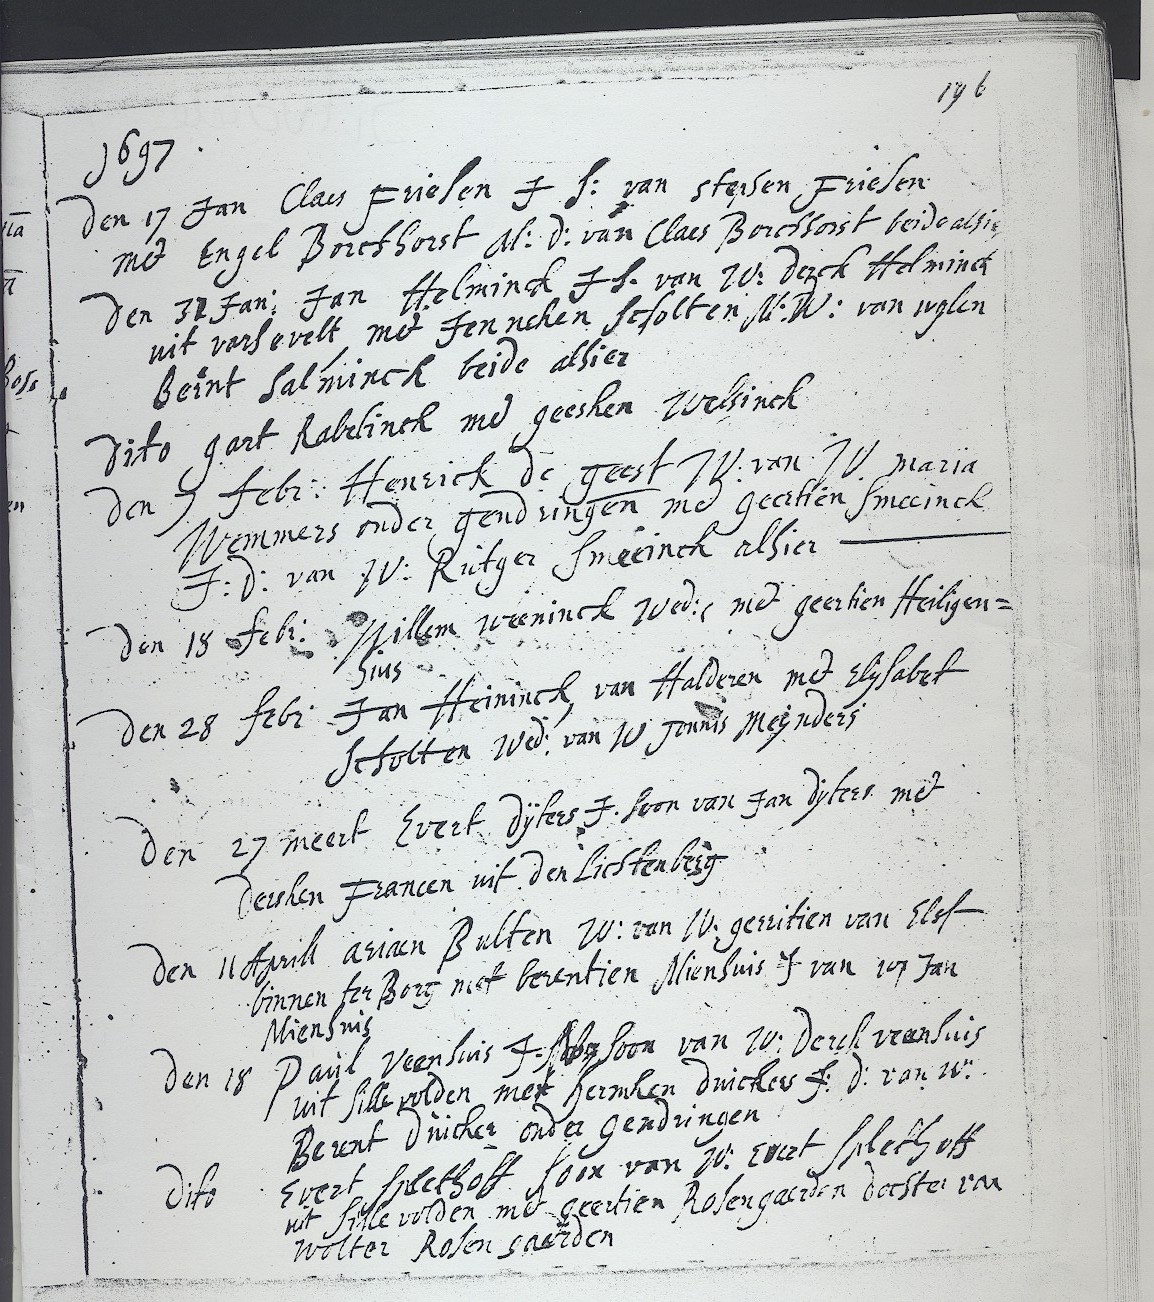 196
1697
Den 17 Jan Claes Friesen J S: van stefsen Friesen
met Engel Borchhorst N: D: van Claes Borchhorst beide alhier
Den 31 Jan: Jan Helminck J S. van W: Derck Helminck
uit varsevelt met Jennehen Scholten N: W: van wylen
Bernt Salminck beide alhier
Dito gart Rabelinck met geeshen Welsinck
Den 7 febr: Henrick de geest W. van W. maria
Wemmers onder gendringen met geertien Smeeinck
J: D: van W: Rutger Smeeinck alhier
Den 18 febr: Willem weeninck Wed: met geertien Heiligen=
hius
Den 28 febr Jan Heininck van Halderen met Elysabet
Scholten Wed: van W Tonnis Meynders
Den 27 meert Evert Dyters J. soon van Jan Dyters met
Dershen Francen uit den Lichtenberg
Den 11 Aprill ariaen Bulten W: van W: gerritien van Elst
binnen ter Borg met berentien Mienhuis J van w Jan
Mienhuis
Den 18 Paul Veenhuis J. soon van W: Derck veenhuis
uit sillevolden met hermhen Duickers J: D: van W:
Berent Duicker onder gendringen
Dito Evert splethoff soon van W: Evert splethoff
uit sillevolden met geertien Rosengaerden docster van
Wolter Rosengaerden